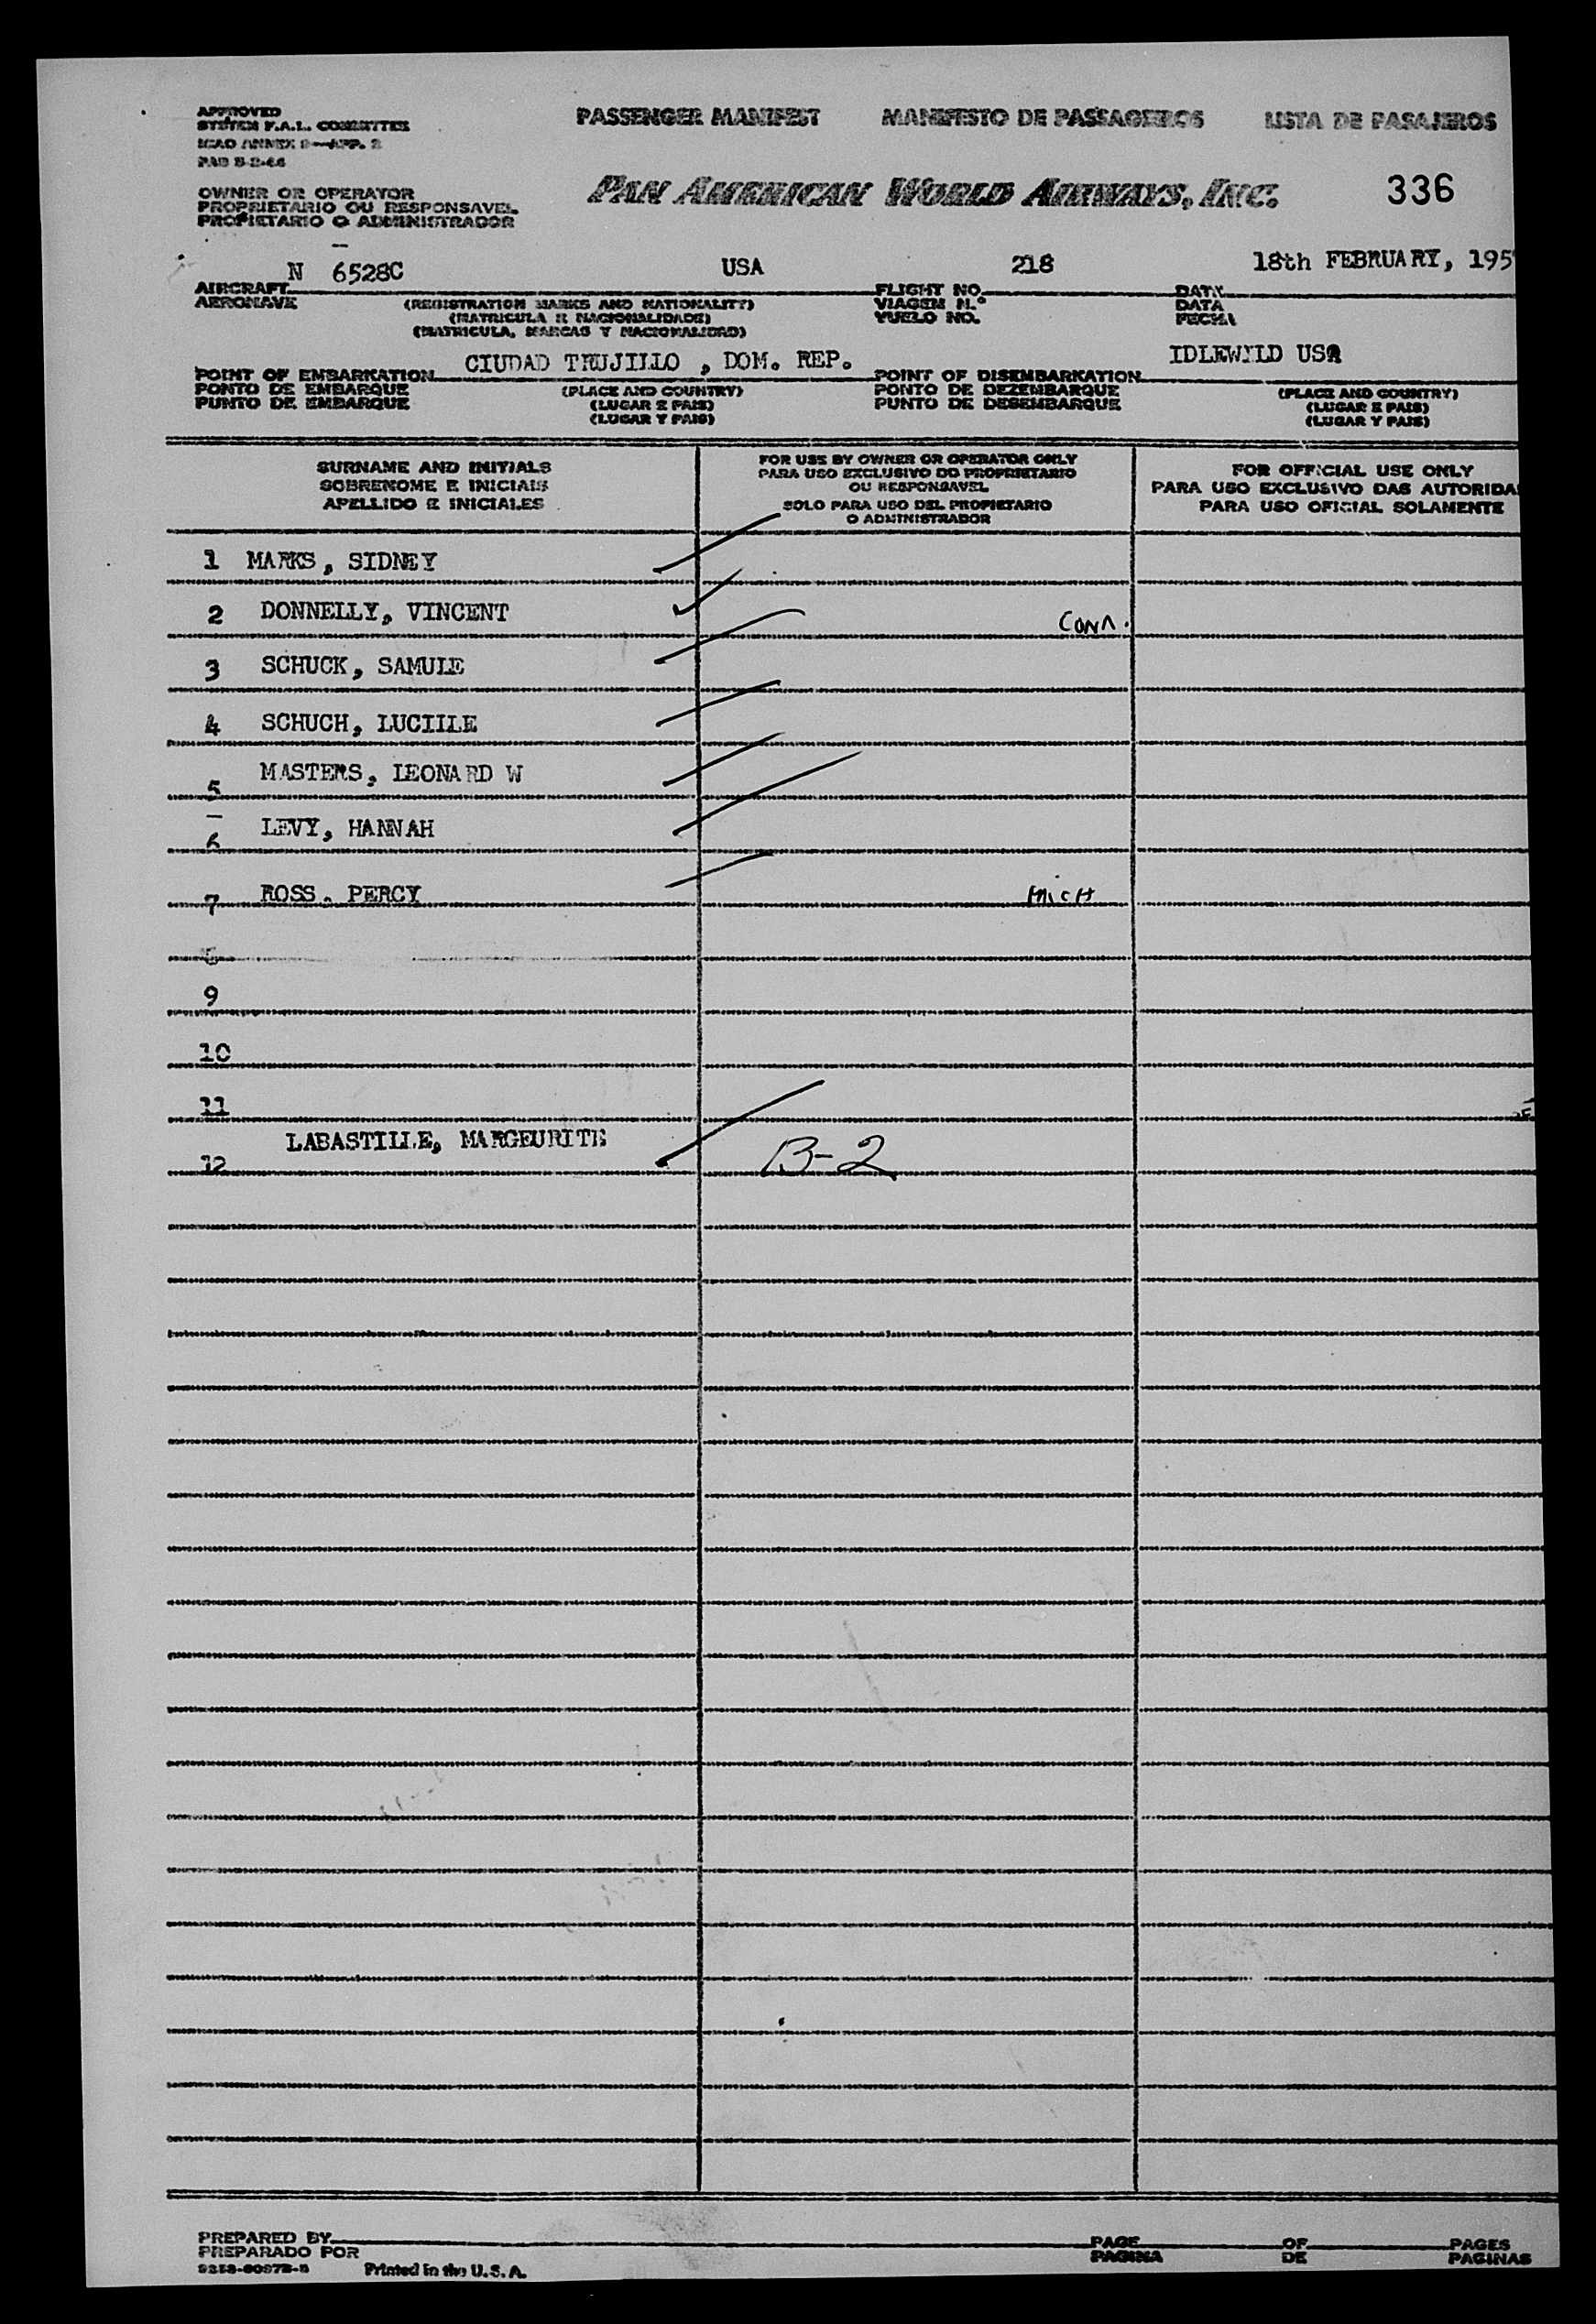 APPROVED
SYSTEM F.A.L. COMMITTEE
ICAO ANNEX 9—APP. 2
PASSENGER MANIFEST MANIFESTO DE PASSAGEIROS LISTA DE PASAJEROS
OWNER OR OPERATOR
PROPRIETARIO OU RESPONSAVEL
PROPIETARIO O ADMINISTRADOR
PAN AMERICAN WORLD AIRWAYS, INC. 336
N 6528C USA 218 18th FEBRUARY, 195
AIRCRAFT FLIGHT NO. DATE
AERONAVE (REGISTRATION MARKS AND NATIONALITY) VIAGEM N.º DATA
(MATRICULA E NACIONALIDADE) VUELO NO. FECHA
(MATRICULA, MARCAS Y NACIONALIDAD)
CIUDAD TRUJILLO , DOM. REP. IDLEWILD USA
POINT OF EMBARKATION POINT OF DISEMBARKATION
PONTO DE EMBARQUE (PLACE AND COUNTRY) PONTO DE DEZEMBARQUE (PLACE AND COUNTRY)
PUNTO DE EMBARQUE (LUGAR E PAIS) PUNTO DE DESEMBARQUE (LUGAR E PAIS)
(LUGAR Y PAIS) (LUGAR Y PAIS)
SURNAME AND INITIALS
SOBRENOME E INICIAIS
APELLIDO E INICIALES
FOR USE BY OWNER OR OPERATOR ONLY
PARA USO EXCLUSIVO DO PROPRIETARIO
OU RESPONSAVEL
SOLO PARA USO DEL PROPIETARIO
O ADMINISTRADOR
FOR OFFICIAL USE ONLY
PARA USO EXCLUSIVO DAS AUTORIDA
PARA USO OFICIAL SOLAMENTE
1 MARKS, SIDNEY
2 DONNELLY, VINCENT Conn.
3 SCHUCK, SAMULE
4 SCHUCH, LUCIILE
5 MASTERS, LEONARD W
6 LEVY, HANNAH
7 ROSS, PERCY MICH
8
9
10
11
12 LABASTILLE, MARGEURITE B-2
PREPARED BY PAGE OF PAGES
PREPARADO POR PAGINA DE PAGINAS
Printed in the U.S.A.